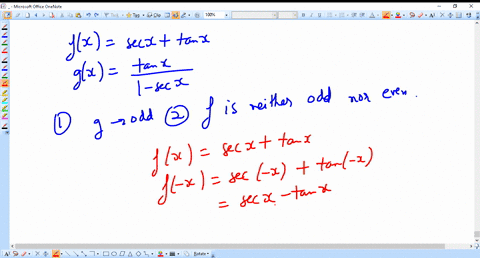 Microsoft Office OneNote
f(x) = secx + tanx
g(x) = tanx / 1-secx
① g → odd ② f is neither odd nor even.
f(x) = secx + tanx
f(-x) = sec(-x) + tan(-x)
= secx - tanx